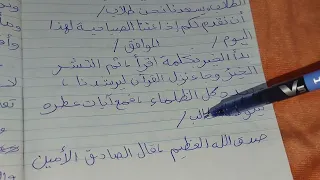 الطلاب، يسعدنا نحن طلاب /
أن نقدم لكم إذاعتنا الصباحية لهذا
اليوم / الموافق /
بدأ الخير بكلمة اقرأ، ثم انتشر
الخير وجاء نزول القرآن ليرشدنا،
كل الظلماء، فمع آيات عطره
الطالب /
صدق الله العظيم، قال الصادق الأمين